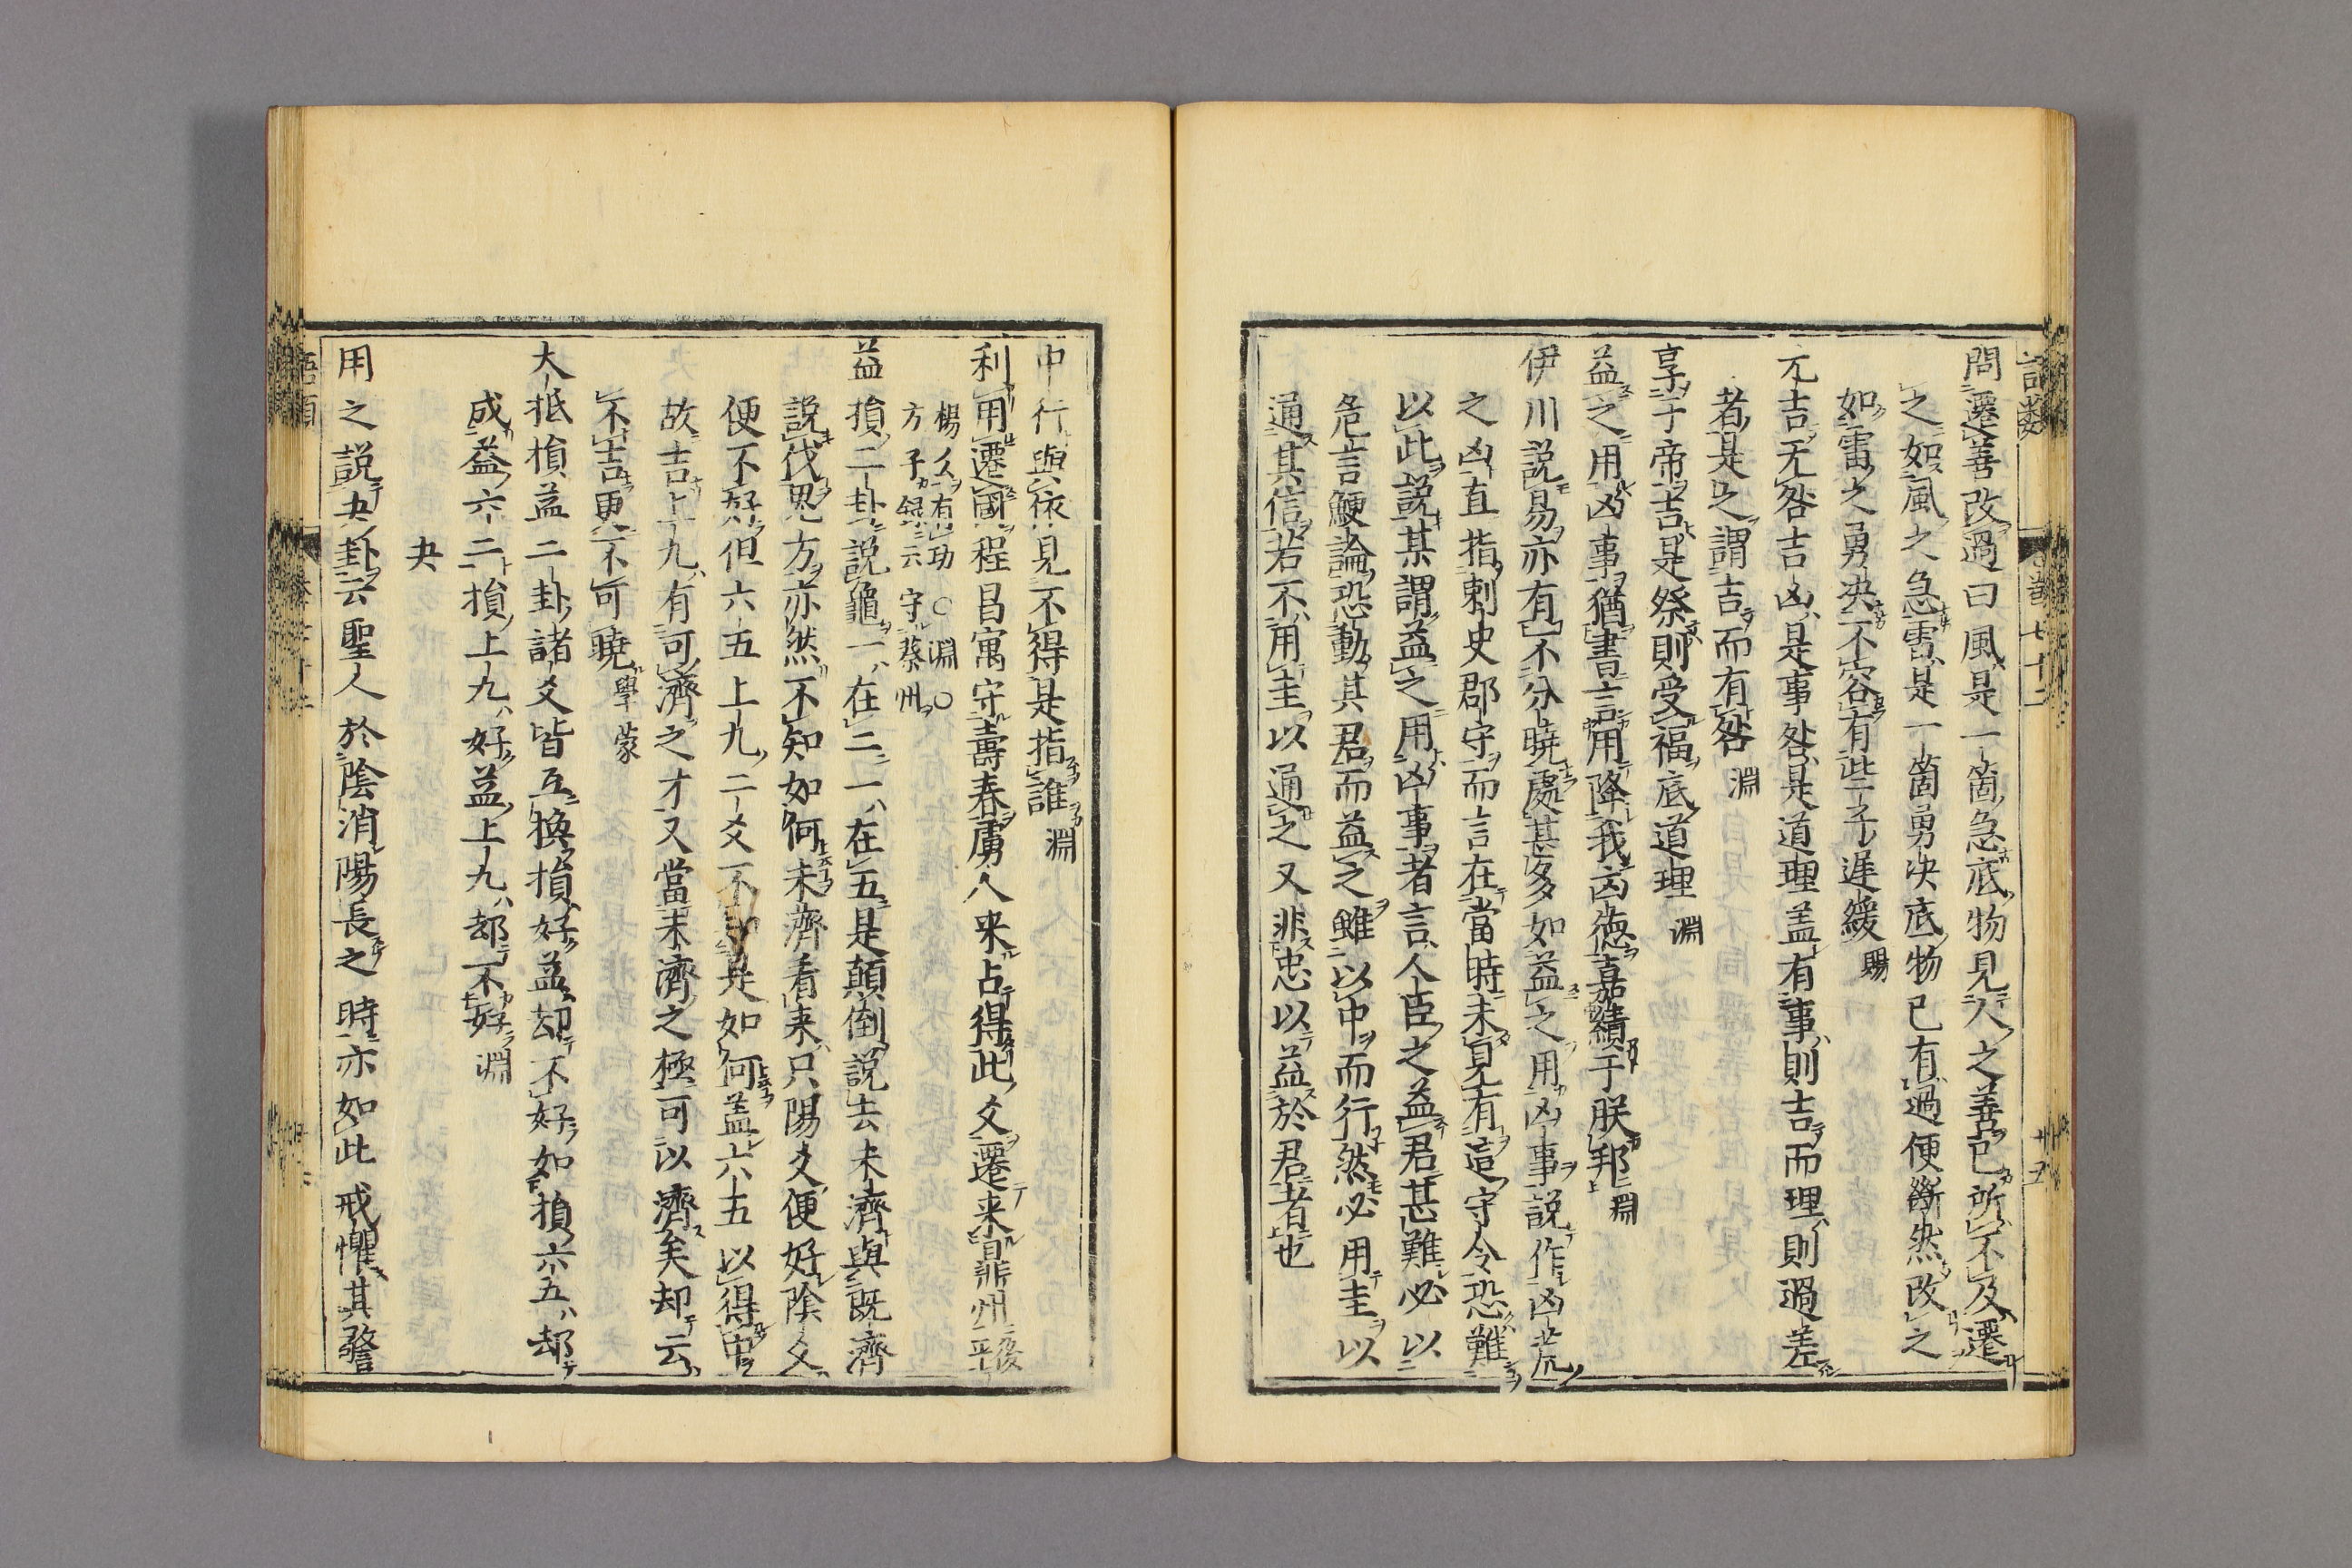 問遷善改過曰風是一箇急底物見人之善已所不及遷
之如風之急雷是一箇勇决底物已有過便斷然改之
如雷之勇决不容有些子遲緩 賜
元吉无咎吉凶是事咎是道理盖有事則吉而理則過差
者是之謂吉而有咎 淵
享于帝吉是祭則受福底道理 淵
益之用凶事猶書言用降我凶徳嘉績于朕邦 淵
伊川說易亦有不分曉處甚多如益之用凶事說作凶荒
之凶直指刺史郡守而言在當時未見有這守令恐難
以此說某謂益之用凶事者言人臣之益君甚難必以
危言鯁論恐動其君而益之雖以中而行然必用圭以
通其信若不用圭以通之又非忠以益於君者也
中行與依見不得是指誰 淵
利用遷國程昌寓守壽春虜人來占得此爻遷来鼎州後平
楊么有功 ○淵○
方子録云守蔡州
益損二卦說龜一在二一在五是顛倒說去未濟與既濟
說伐鬼方亦然不知如何未濟看来只陽爻便好陰爻
便不好但六五上九二爻不是如何盖六五以得中
故吉上九有可濟之才又當未濟之極可以濟矣却云
不吉更不可曉 學蒙
大抵損益二卦諸爻皆互換損好益却不好如損六五却
成益六二損上九好益上九却不好 淵
夬
用之說夬卦云聖人於陰消陽長之時亦如此戒懼其警